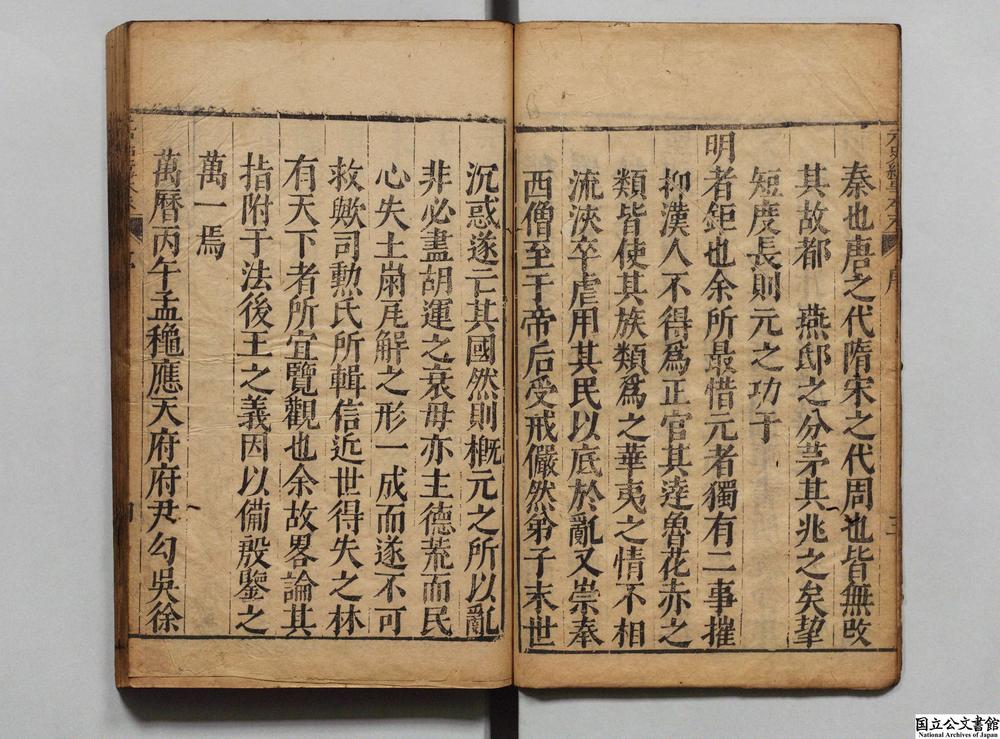 秦也唐之代隋宋之代周也皆無改
其故都　燕邸之分茅其兆之矣挈
短度長則元之功于
明者鉅也余所最惜元者獨有二事摧
抑漢人不得爲正官其逹魯花赤之
類皆使其族類爲之華夷之情不相
流浹卒虐用其民以底於亂又崇奉
西僧至于帝后受戒儼然弟子末世
沉惑遂亡其國然則概元之所以亂
非必盡胡運之衰毋亦主德荒而民
心失土崩瓦解之形一成而遂不可
救歟司勲氏所輯信近世得失之林
有天下者所宜覽觀也余故畧論其
指附于法後王之義因以僃殷鑒之
萬一焉
萬曆丙午孟龝應天府府尹勾吳徐
国立公文書館
National Archives of Japan